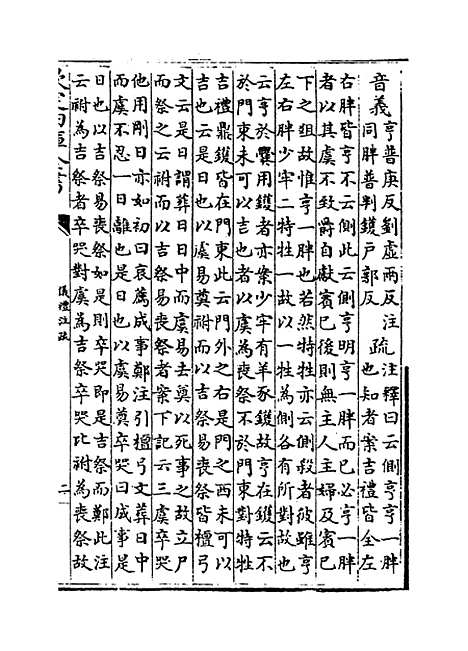 音義
亨普庚反劉虛兩反注
同胖普判鑊戸郭反
疏
注釋曰云側亨亨一胖
也知者案吉禮皆全左
右胖皆亨不云側此云側亨明亨一胖而已必亨一胖
者以其虞不致爵自獻賓已後則無主人主婦及賓已
下之俎故惟亨一胖也若然特牲亦云側殺者彼雖亨
左右胖少牢二特牲一故以一牲為側各有所對故也
云亨於爨用鑊者亦案少牢有羊豕鑊故亨在鑊云不
於門東未可以吉也者以虞為喪祭不於門東對特牲
吉禮鼎鑊皆在門東此云門外之右是門之西未可以
吉也云是日也以虞易奠祔而以吉祭易喪祭皆檀弓
文云是日謂葬日日中而虞易去奠以死事之故立尸
而祭之云祔而以吉祭易喪祭者案下記云三虞卒哭
他用剛日亦如初曰哀薦成事鄭注引檀弓文葬日中
而虞不忍一日離也是日也以虞易奠卒哭曰成事是
日也以吉祭易喪祭如是則卒哭即是吉祭而鄭此注
云祔為吉祭者卒哭對虞為吉祭卒哭比祔為喪祭故
欽定四庫全書
儀禮注疏
二